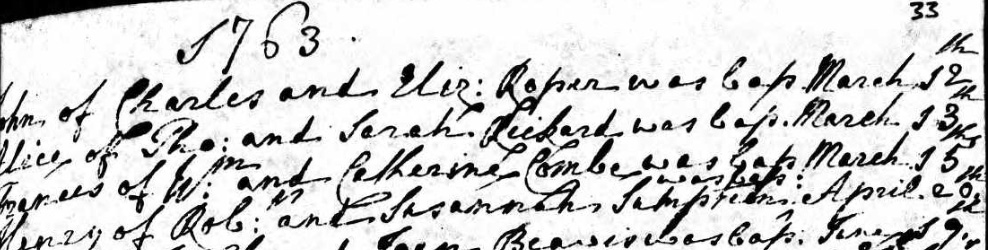 33
1763.
John of Charles and Eliz: Roper was bap. March 12th
Alice of Tho: and Sarah Rickard was bap. March 13th
Frances of Wm and Catherine Combe was bap. March 15th
Henry of Rob: and Susannah Simpkin was bap: April 20th
Joan was bap. June 19